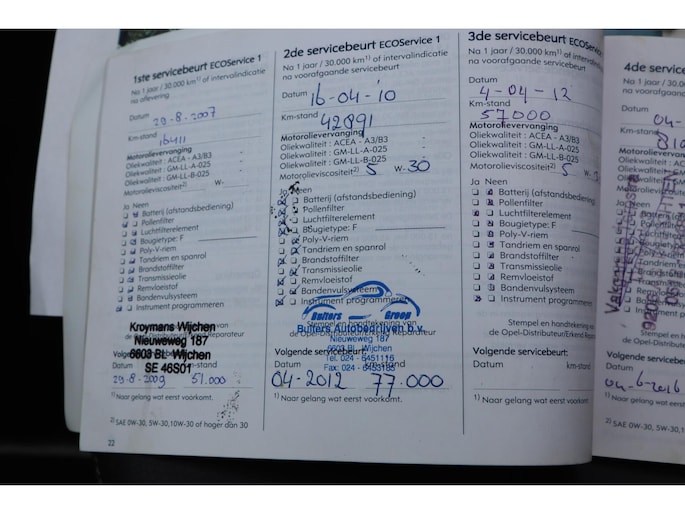 1ste servicebeurt ECOService 1
Na 1 jaar / 30.000 km1) of intervalindicatie
na aflevering
Datum
29-8-2007
Km-stand
16411
Motorolievervanging
Oliekwaliteit : ACEA - A3/B3
Oliekwaliteit : GM-LL-A-025
Oliekwaliteit : GM-LL-B-025
Motorolieviscositeit2) W-
Ja Neen
Batterij (afstandsbediening)
Pollenfilter
Luchtfilterelement
Bougietype: F
Poly-V-riem
Tandriem en spanrol
Brandstoffilter
Transmissieolie
Remvloeistof
Bandenvulsysteem
Instrument programmeren
Kroymans Wijchen
Nieuweweg 187
6603 BL Wijchen
SE 46S01
Datum km-stand
29-8-2009 51.000
1) Naar gelang wat eerst voorkomt.
2) SAE 0W-30, 5W-30,10W-30 of hoger dan 30
22
2de servicebeurt ECOService 1
Na 1 jaar / 30.000 km1) of intervalindicatie
na voorafgaande servicebeurt
Datum 16-04-'10
Km-stand
42891
Motorolievervanging
Oliekwaliteit : ACEA - A3/B3
Oliekwaliteit : GM-LL-A-025
Oliekwaliteit : GM-LL-B-025
Motorolieviscositeit2) 5 W- 30
Ja Neen
Batterij (afstandsbediening)
Pollenfilter
Luchtfilterelement
Bougietype: F
Poly-V-riem
Tandriem en spanrol
Brandstoffilter
Transmissieolie
Remvloeistof
Bandenvulsysteem
Instrument programmeren
Bulters Groep
Stempel en handtekening van
Bulters Autobedrijven b.v.
de Opel-Distributeur/Erkend Reparateur
Nieuweweg 187
6603 BL Wijchen
Volgende servicebeurt:
Tel: 024 - 6451116
Datum km-stand
04-2012 77.000
1) Naar gelang wat eerst voorkomt.
3de servicebeurt ECOService 1
Na 1 jaar / 30.000 km1) of intervalindicatie
na voorafgaande servicebeurt
Datum
4-04-12
Km-stand
57000
Motorolievervanging
Oliekwaliteit : ACEA - A3/B3
Oliekwaliteit : GM-LL-A-025
Oliekwaliteit : GM-LL-B-025
Motorolieviscositeit2) 5 W-
Ja Neen
Batterij (afstandsbediening)
Pollenfilter
Luchtfilterelement
Bougietype: F
Poly-V-riem
Tandriem en spanrol
Brandstoffilter
Transmissieolie
Remvloeistof
Bandenvulsysteem
Instrument programmeren
Stempel en handtekening van
de Opel-Distributeur/Erkend Repa
Volgende servicebeurt:
Datum km-stand
1) Naar gelang wat eerst voorkomt.
4de servic
Na 1 jaar / 30.
na voorafgaan
Datum
04-
Km-stand
Motorolieverva
Oliekwaliteit : A
Oliekwaliteit : G
Oliekwaliteit : G
Motorolieviscosi
Ja Neen
Volgende service
Datum
04-6-2016
1) Naar gelang wat